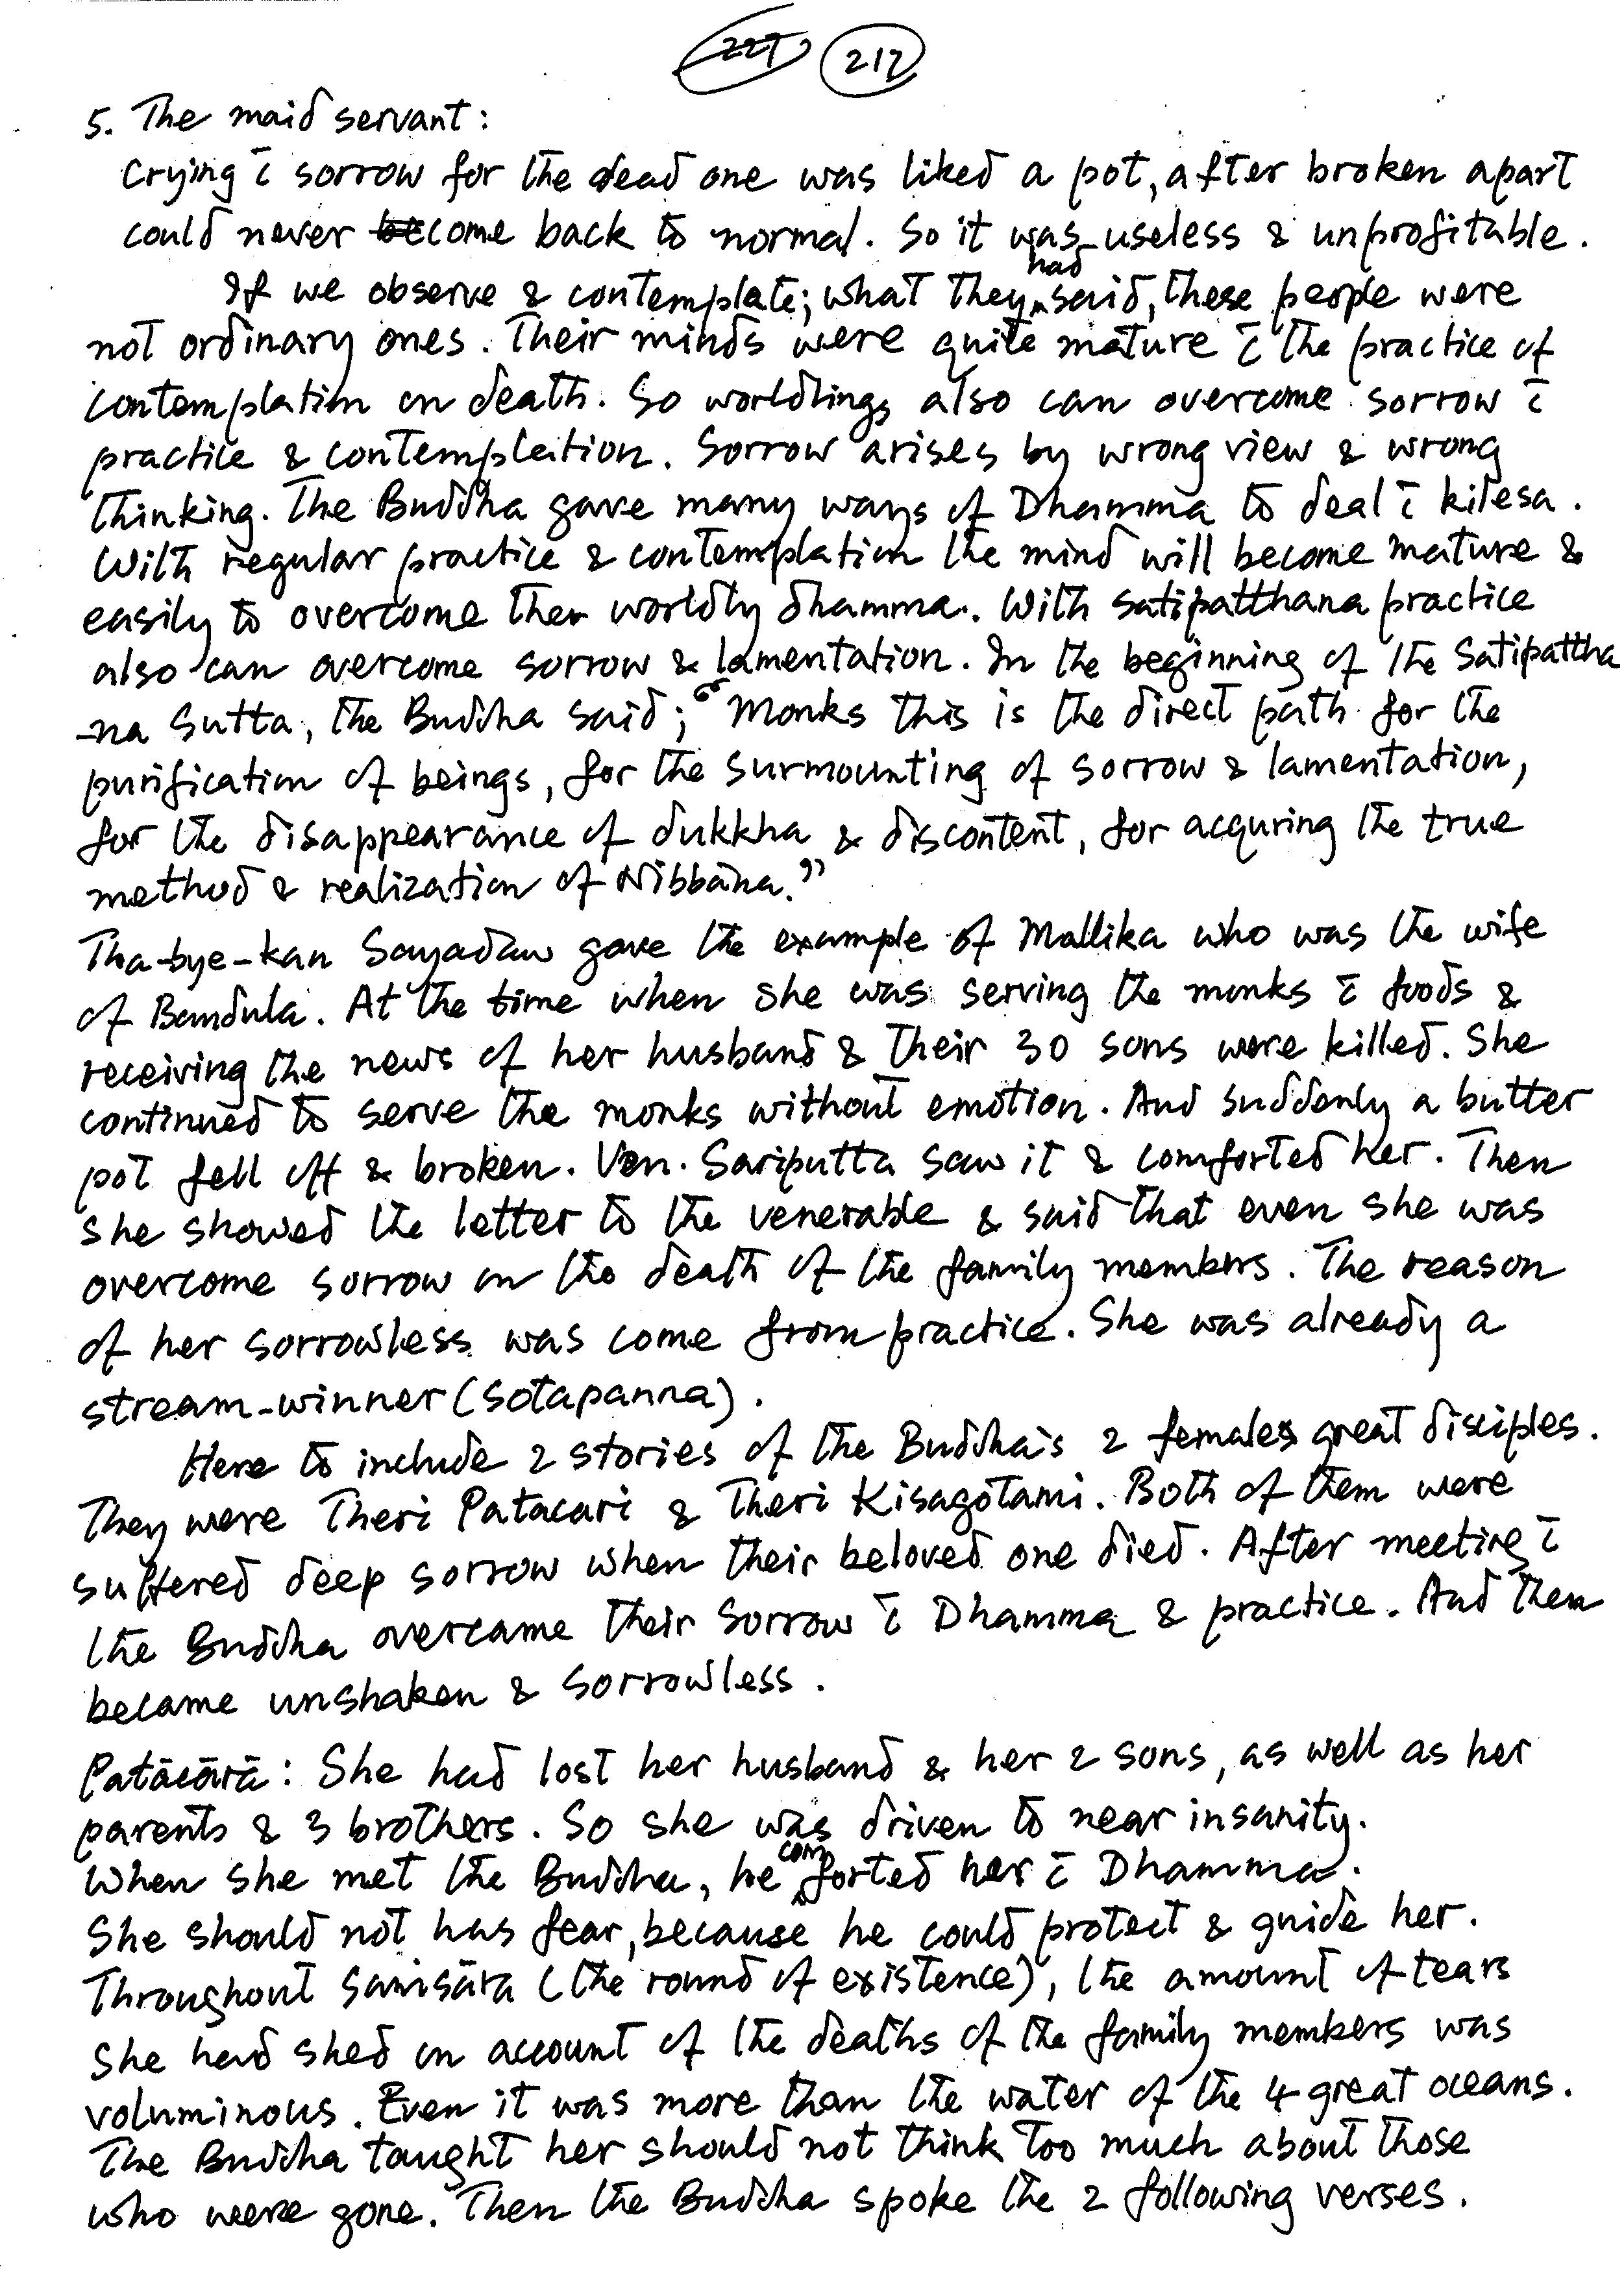 227 212
5. The maid servant:
Crying c̄ sorrow for the dead one was liked a pot, after broken apart
could never become back to normal. So it was useless & unprofitable.
If we observe & contemplate; what they had said, these people were
not ordinary ones. Their minds were quite mature c̄ the practice of
contemplation on death. So worldlings also can overcome sorrow c̄
practice & contemplation. Sorrow arises by wrong view & wrong
thinking. The Buddha gave many ways of Dhamma to deal c̄ kilesa.
With regular practice & contemplation the mind will become mature &
easily to overcome ther worldly dhamma. With satipatthana practice
also can overcome sorrow & lamentation. In the beginning of the Satipattha
-na Sutta, the Buddha said; "Monks this is the direct path for the
purification of beings, for the surmounting of sorrow & lamentation,
for the disappearance of dukkha & discontent, for acquring the true
method & realization of Nibbāna."
Tha-bye-kan Sayadaw gave the example of Mallika who was the wife
of Bandula. At the time when she was serving the monks c̄ foods &
receiving the news of her husband & their 30 sons were killed. She
continued to serve the monks without emotion. And suddenly a butter
pot fell off & broken. Ven. Sariputta saw it & comforted her. Then
she showed the letter to the venerable & said that even she was
overcome sorrow on the death of the family members. The reason
of her sorrowless was come from practice. She was already a
stream-winner (sotapanna).
Here to include 2 stories of the Buddha's 2 females great disciples.
They were Theri Patacari & Theri Kisagotami. Both of them were
suffered deep sorrow when their beloved one died. After meeting c̄
the Buddha overcame their sorrow c̄ Dhamma & practice. And then
became unshaken & sorrowless.
Patācārā: She had lost her husband & her 2 sons, as well as her
parents & 3 brothers. So she was driven to near insanity.
When she met the Buddha, he comforted her c̄ Dhamma.
She should not has fear, because he could protect & guide her.
Throughout saṁsāra (the round of existence), the amount of tears
she had shed on account of the deaths of the family members was
voluminous. Even it was more than the water of the 4 great oceans.
The Buddha taught her should not think too much about those
who were gone. Then the Buddha spoke the 2 following verses.